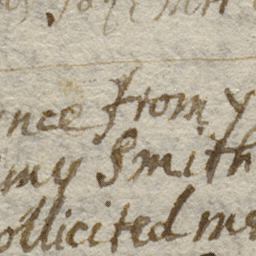 nce from y
my Smith
ollicited me